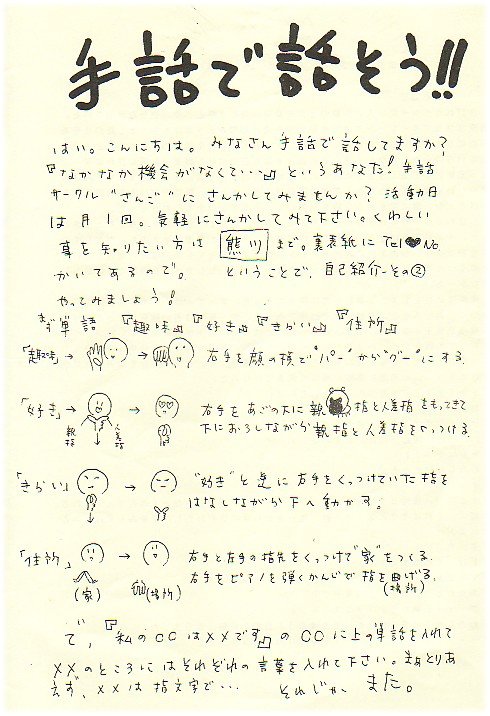 手話で話そう!!
はい。こんにちは。みなさん手話で話してますか?
『なかなか機会がなくて…』というあなた!手話
サークル“さんご”にさんかしてみませんか?活動日
は月1回。気軽にさんかしてみて下さい。くわしい
事を知りたい方は 熊ツ まで。裏表紙にTel♥No
かいてあるので。 ということで、自己紹介-その②
やってみましょう!
まず単語、『趣味』『好き』『きらい』『住所』
「趣味」→ → 右手を顔の横で“パー”から“グー”にする。
「好き」→ → 右手をあごの下に親指と人差指をもってきて
親指 人差指 下におろしながら親指と人差指をくっつける。
「きらい」 → “好き”と逆に右手をくっつけていた指を
はなしながら下へ動かす。
「住所」 → 右手と左手の指先をくっつけて“家”をつくる。
(家) (場所) 右手をピアノを弾くかんじで指を曲げる。
(場所)
で、『私の○○は××です』の○○に上の単語を入れて
××のところにはそれぞれの言葉を入れて下さい。まあとりあ
えず、××は指文字で… それじゃ、また。